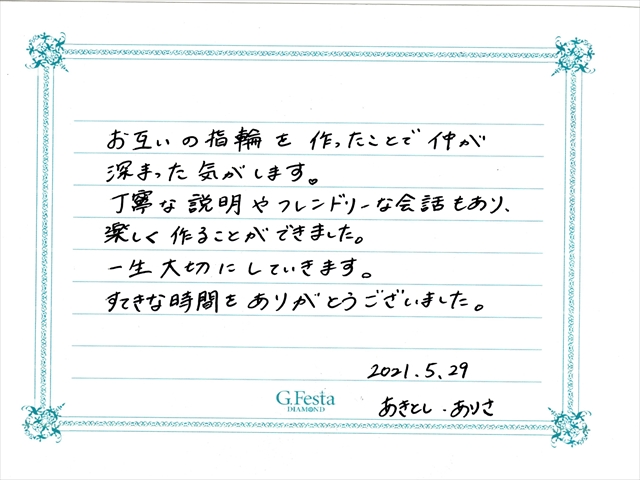 お互いの指輪を作ったことで仲が
深まった気がします。
丁寧な説明やフレンドリーな会話もあり、
楽しく作ることができました。
一生大切にしていきます。
すてきな時間をありがとうございました。
2021.5.29
G.Festa
DIAMOND
あきとし・ありさ